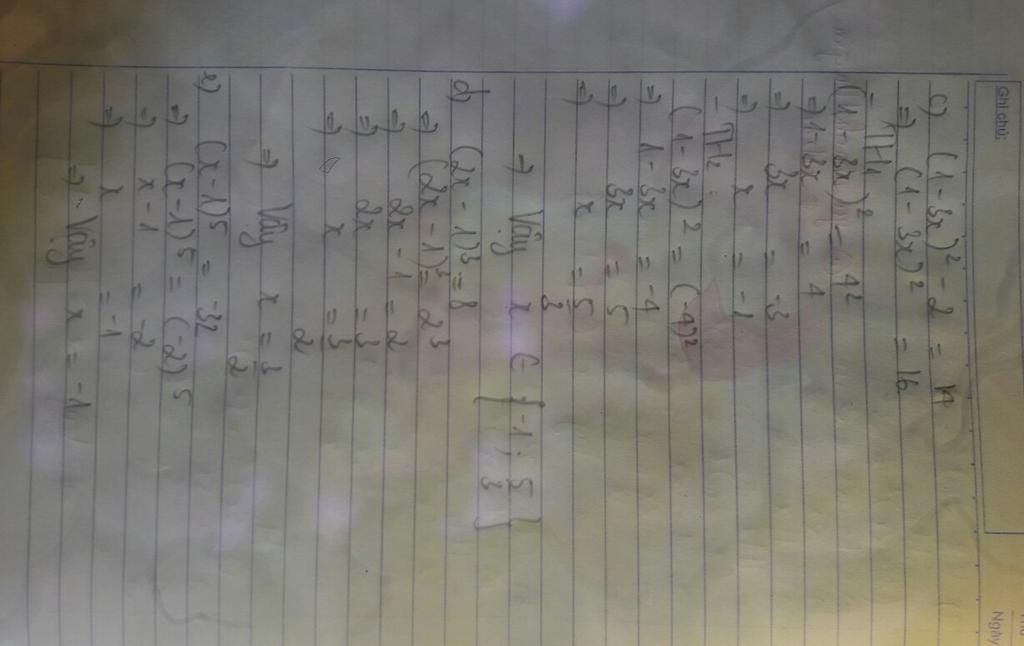 Ghi chú:
Thứ
Ngày
c) (1 - 3x)² - 2 = 14
=) (1 - 3x)² = 16
- TH1
(1 - 3x)² = 4²
=) 1 - 3x = 4
=) 3x = -3
=) x = -1
- TH2:
(1 - 3x)² = (-4)²
=) 1 - 3x = -4
=) 3x = 5
=) x = 5/3
=) Vậy x ∈ { -1 ; 5/3 }
d) (2x - 1)³ = 8
=) (2x - 1)³ = 2³
=) 2x - 1 = 2
=) 2x = 3
=) x = 3/2
=) Vậy x = 3/2
e) (x - 1)⁵ = -32
=) (x - 1)⁵ = (-2)⁵
=) x - 1 = -2
=) x = -1
=) Vậy x = -1